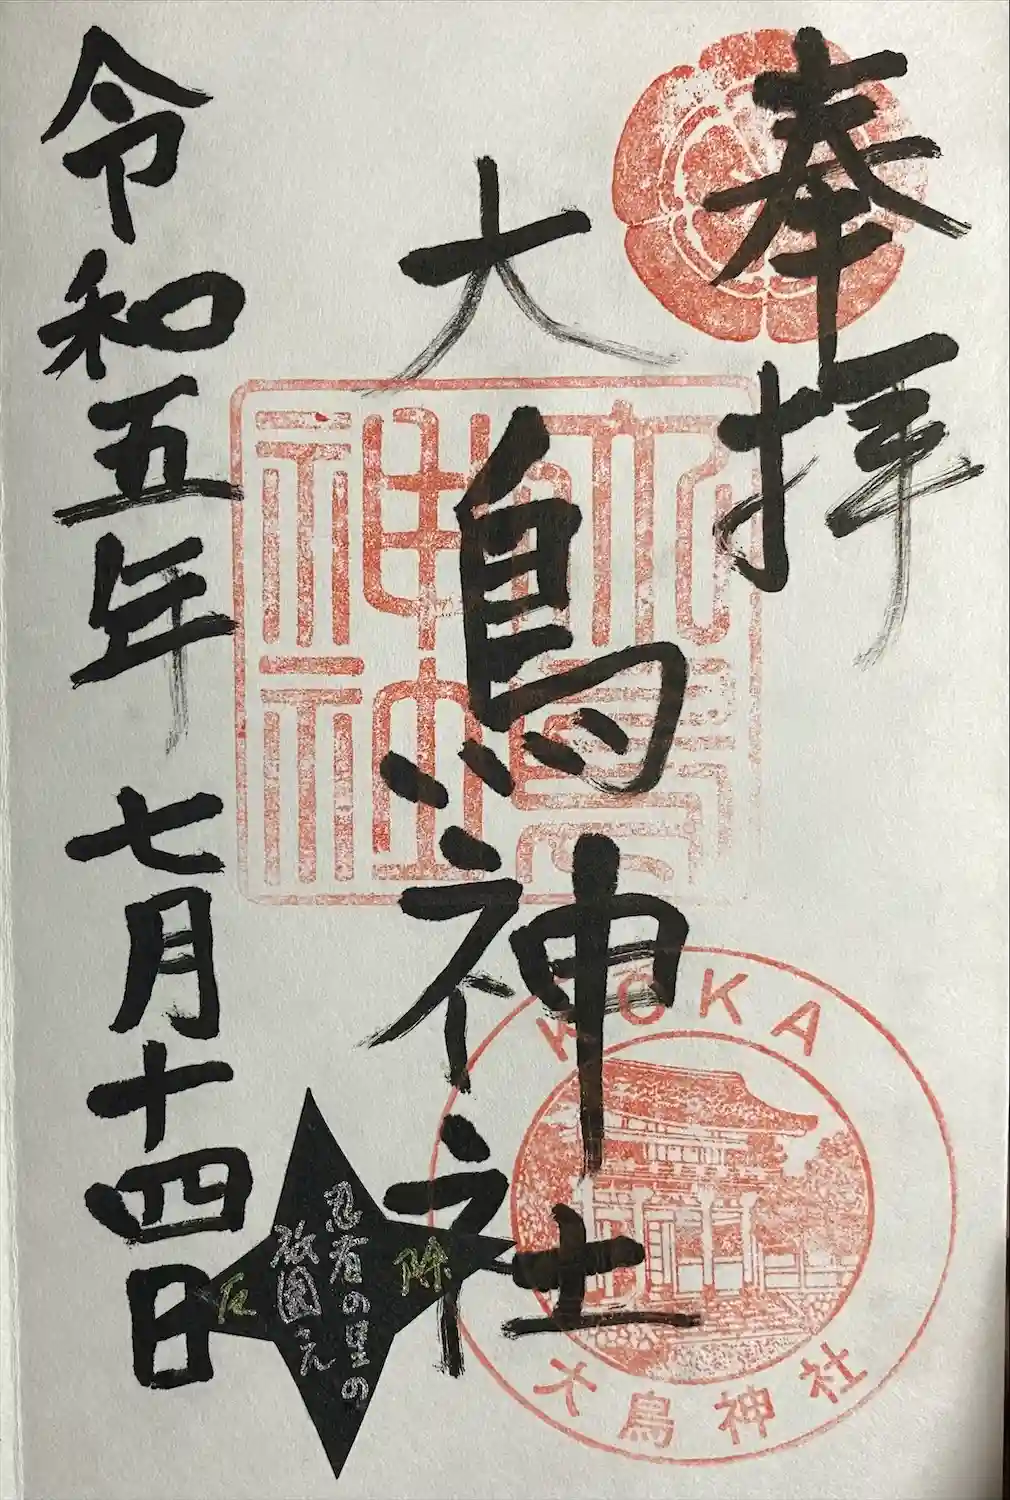 奉拝
大鳥神社
令和五年七月十四日
大鳥神社神社
KOKA
大鳥神社
忍者の里の
祇園さん